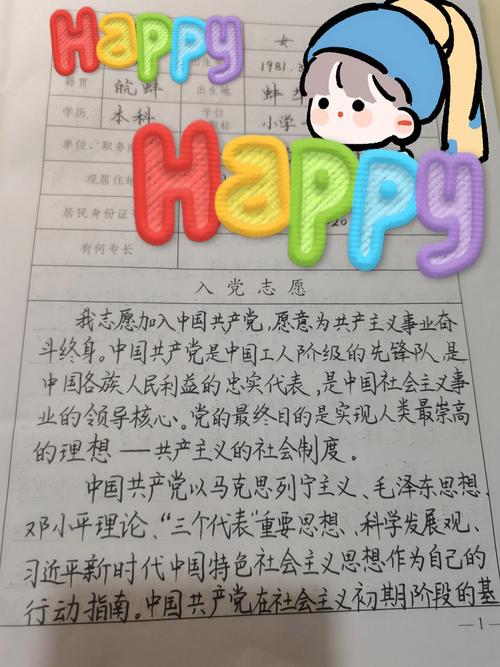 Happy
女
出生
1981.
籍贯 皖蚌 出生地 蚌
学历 本科 学位 职称 小学
单位、职务
Happy
现居住地
居民身份证
有何专长
入党志愿
我志愿加入中国共产党,愿意为共产主义事业奋
斗终身。中国共产党是中国工人阶级的先锋队,是
中国各族人民利益的忠实代表,是中国社会主义事
业的领导核心。党的最终目的是实现人类最崇高
的理想——共产主义的社会制度。
中国共产党以马克思列宁主义、毛泽东思想、
邓小平理论、"三个代表"重要思想、科学发展观、
习近平新时代中国特色社会主义思想作为自己的
行动指南。中国共产党在社会主义初期阶段的基
—1